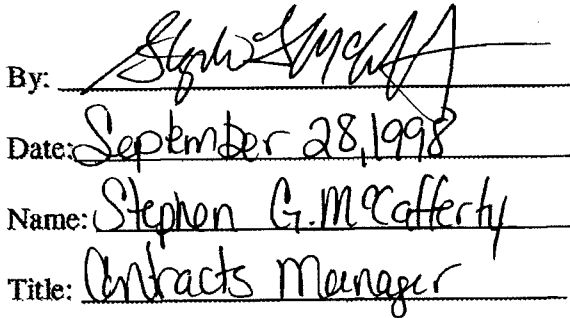 By: Stephen G McCafferty
Date: September 28, 1998
Name: Stephen G. McCafferty
Title: Contracts Manager